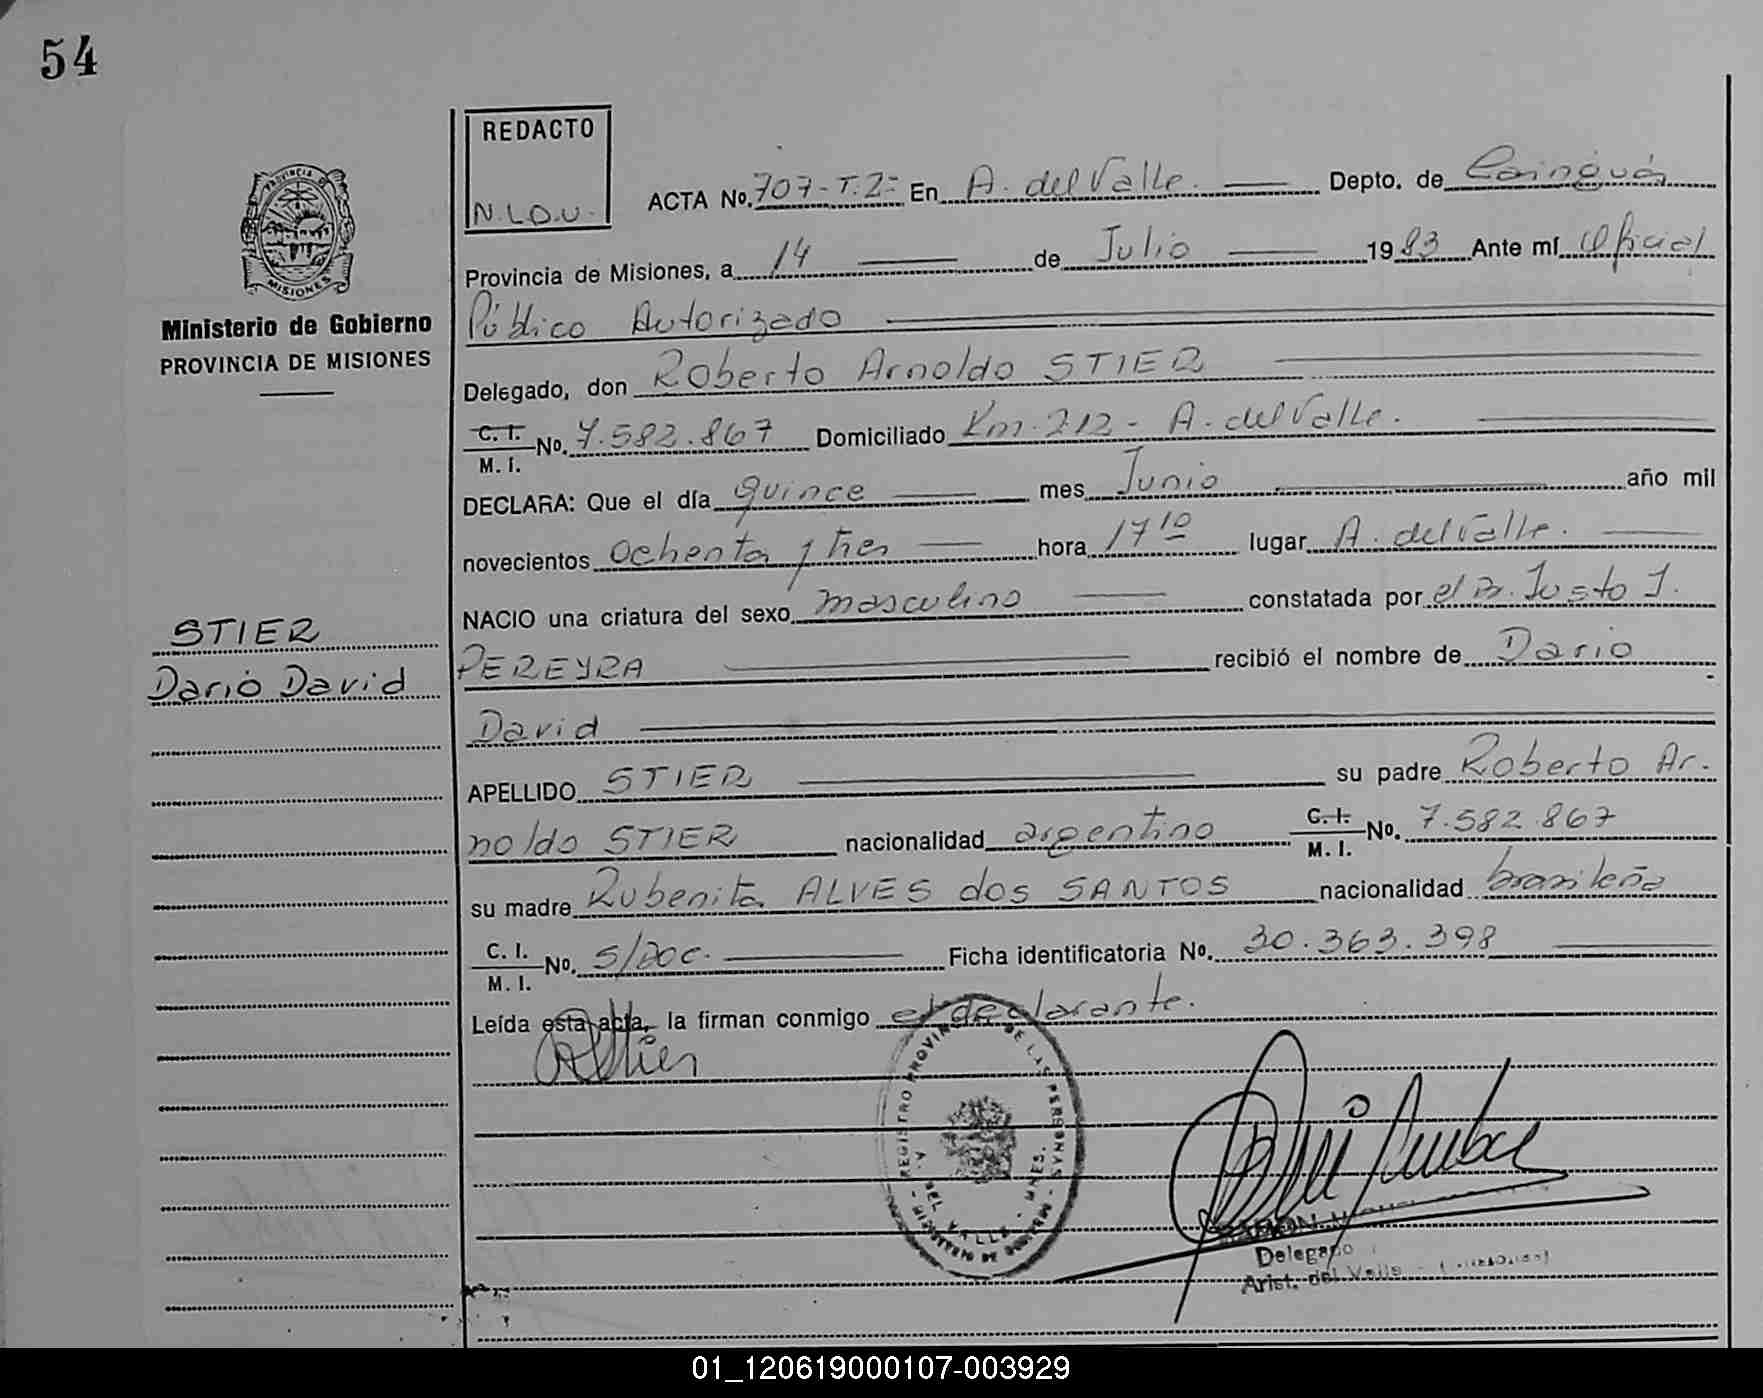 54
REDACTO
N.L.O.U.
PROVINCIA DE
MISIONES
Ministerio de Gobierno
PROVINCIA DE MISIONES
ACTA No. 707-T.2= En A. del Valle. Depto. de Cainguás
Provincia de Misiones, a 14 de Julio 1983 Ante mí Oficial
Público Autorizado
Delegado, don Roberto Arnoldo STIER
C. I. M. I. No. 7.582.867 Domiciliado Km. 212 - A. del Valle.
DECLARA: Que el día quince mes Junio año mil
novecientos ochenta y tres hora 17 10 lugar A. del Valle.
NACIO una criatura del sexo masculino constatada por el Dr. Justo J.
PEREYRA recibió el nombre de Dario
David
APELLIDO STIER su padre Roberto Ar.
noldo STIER nacionalidad argentino C. I. M. I. No. 7.582.867
su madre Rubenita ALVES dos SANTOS nacionalidad brasileña
C. I. M. I. No. s/doc. Ficha identificatoria No. 30.363.398
Leída esta acta, la firman conmigo el declarante.
STIER
Dario David
REGISTRO PROVIN DE LAS PERSONAS
A. DEL VALLE - MNES.
MINISTERIO DE GOBIERNO
RAMON
Delegado
Arist. del Valle
01_120619000107-003929